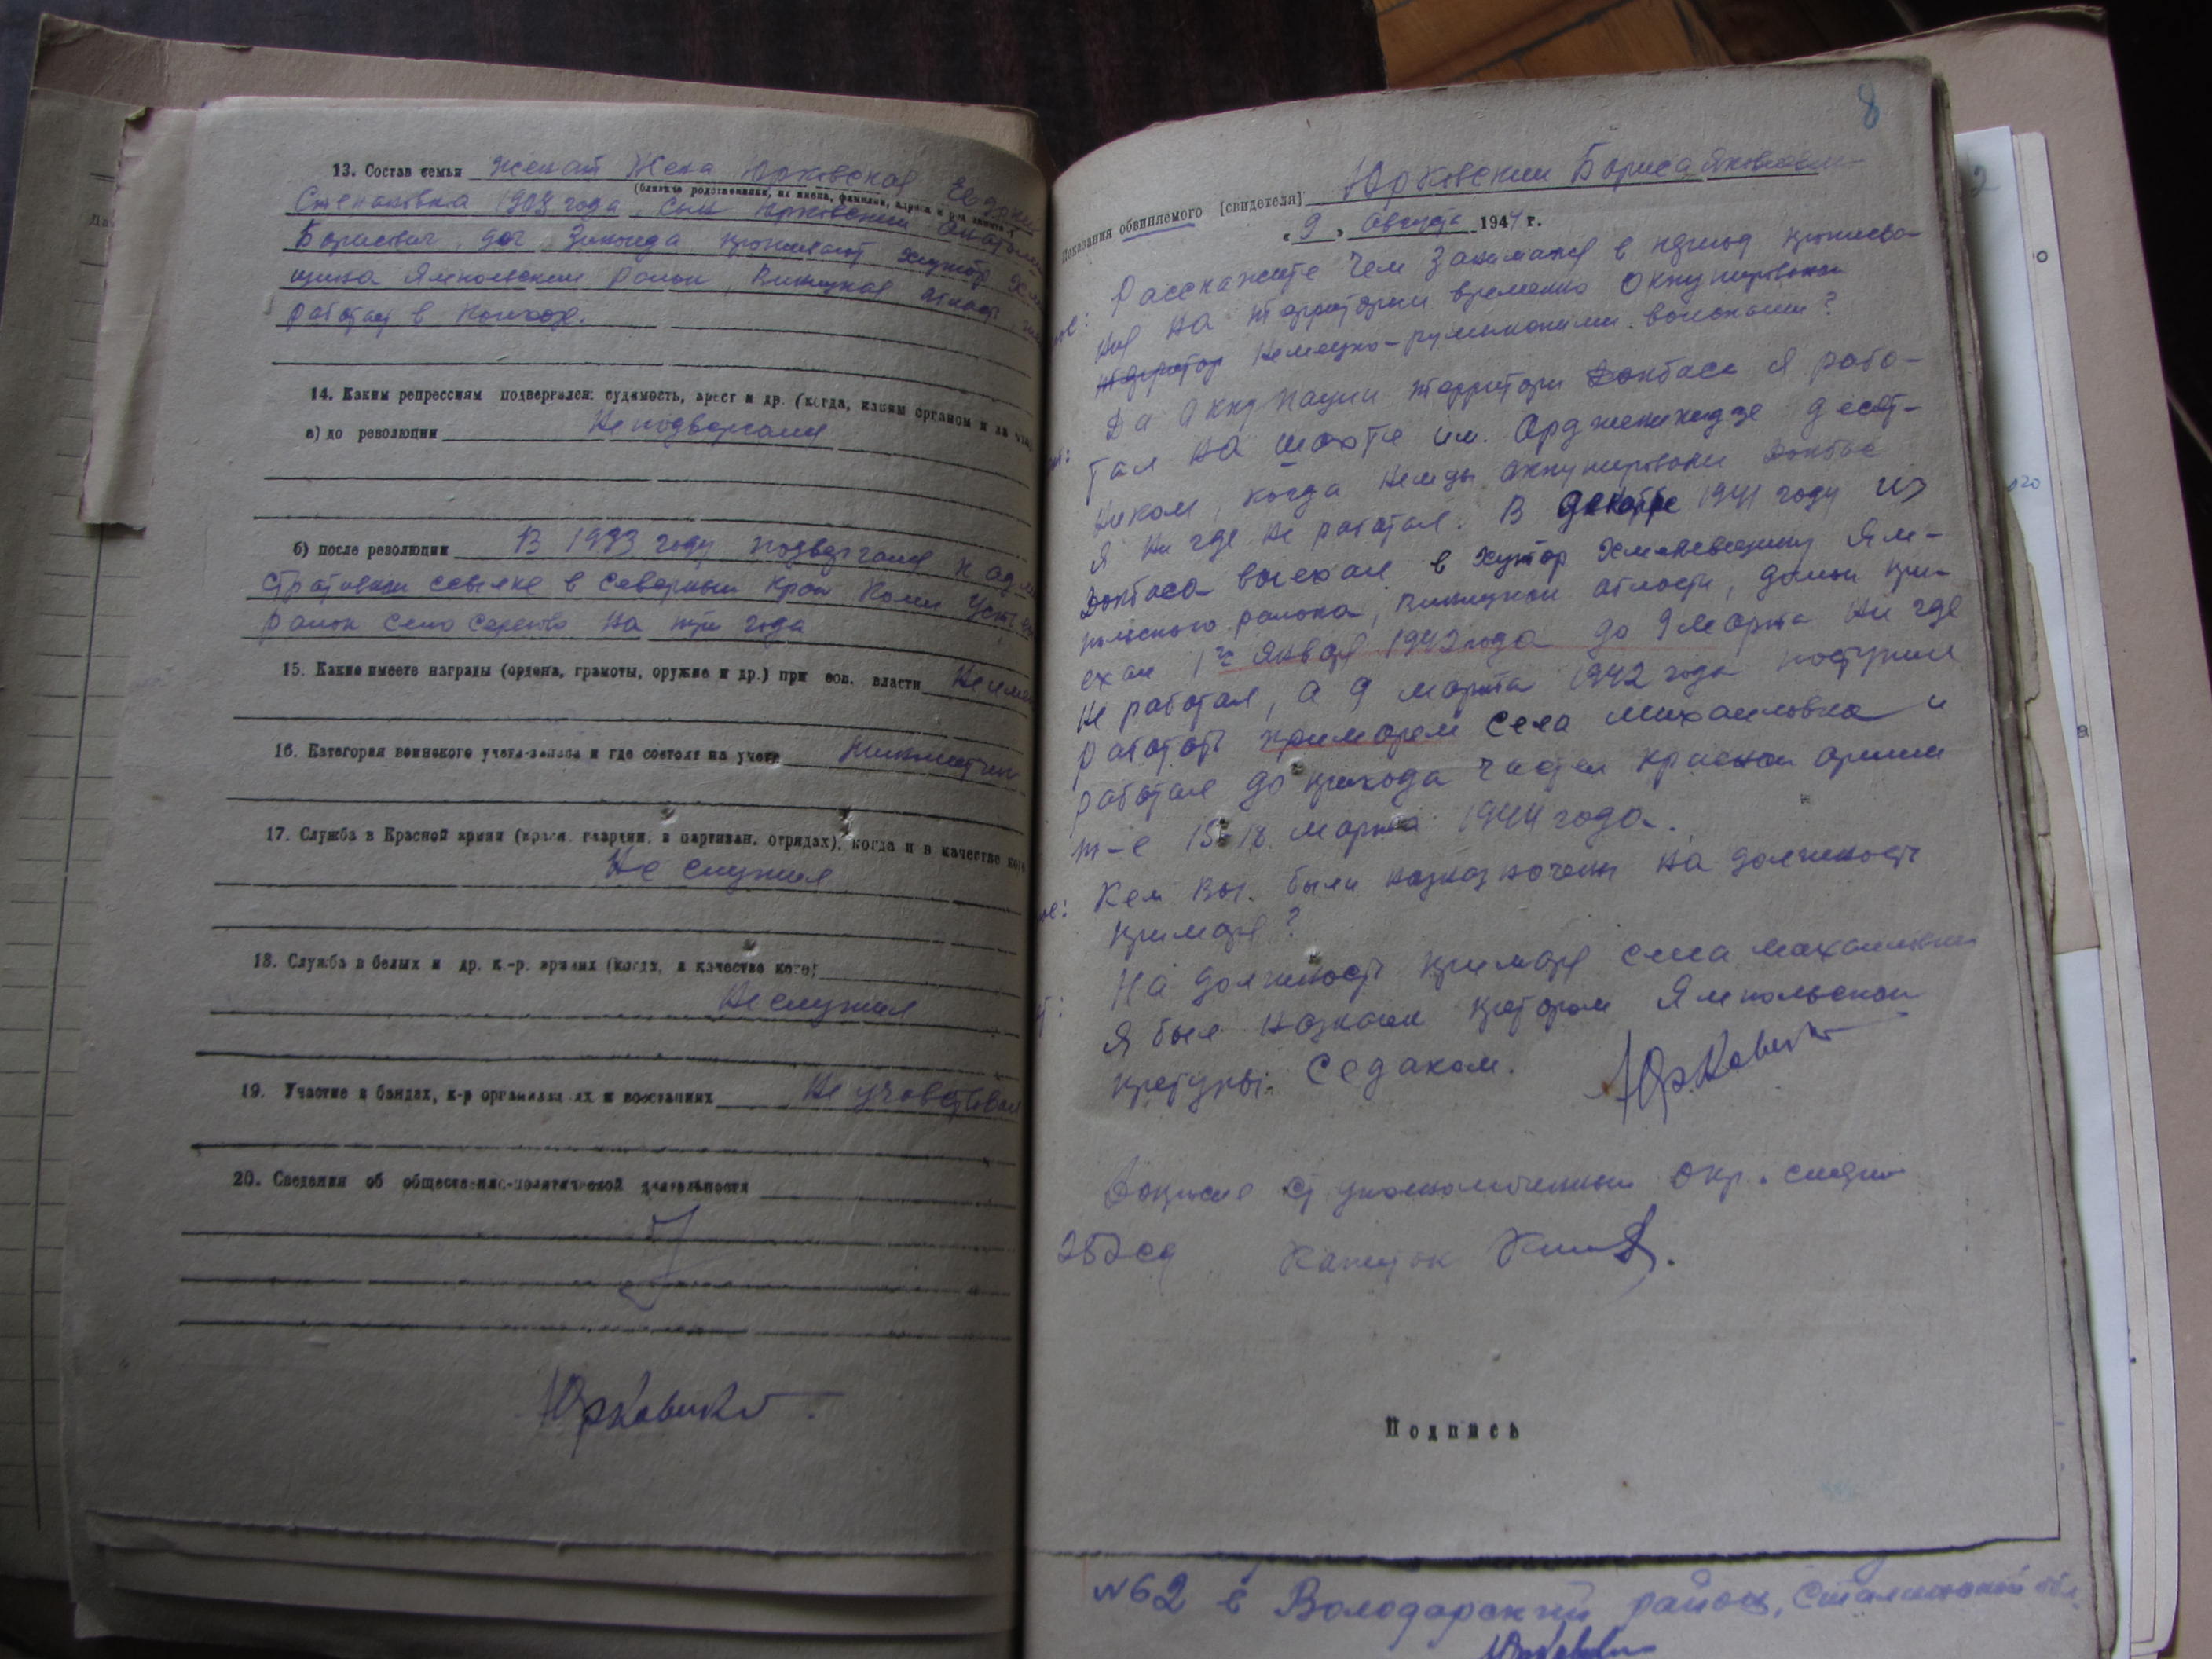 13. Состав семьи женат Жена Юрковская Евдокия
(близкие родственники, их имена, фамилии, адреса и род занятий)
Степановна 1903 года, сын Юрковский
Борисович, доч Зинаида проживают хутор
Ямпольский район, Виницкая область,
работает в колхозе.
14. Каким репрессиям подвергался: судимость, арест и др. (когда, каким органом и за что)
а) до революции Не подвергался
б) после революции В 1933 году подвергался к адми
стративной ссылке в Северный край Коми Усть
район село Серегово на три года
15. Какие имеете награды (ордена, грамоты, оружие и др.) при сов. власти Не имею
16. Категория воинского учета-запаса и где состоял на учете
17. Служба в Красной армии (красн. гвардии, в партизан. отрядах), когда и в качестве кого
Не служил
18. Служба в белых и др. к.-р. армиях (когда, в качестве кого)
Не служил
19. Участие в бандах, к-р организациях и восстаниях Не участвовал
20. Сведения об общественно-политической деятельности
Юрковский
8
Показания обвиняемого [свидетеля] Юрковский Бориса Яковлевич
« 9 » августа 1944 г.
Расскажите чем занимался в период прожива-
ния на територии временно оккупирований
територ немецко-румынскими войсками?
До оккупации територи Донбаса я рабо-
тал на шахте им. Орджоникидзе десят-
ником, когда немцы оккупировали Донбас
я ни где не работал. В декабре 1941 году из
Донбаса выехал в хутор Хмелевщину Ям-
польского района, Виницкой области, домой при-
ехал 1го января 1942 года до 9 марта ни где
не работал, а 9 марта 1942 года поступил
работать примарем села Михайловка и
работал до прихода частей красной армии
т-е 15-18 марта 1944 года.
Кем вы были назназначены на должность
примаря?
На должность примаря села Михайловки
я был назначен претором Ямпольской
претуры Седаком.
Юрковский
Допросил ст уполномоченный окр. смерш
252 сд Капитан
Подпись
№62 в Володарский район, Сталинской обл.
Юрковский